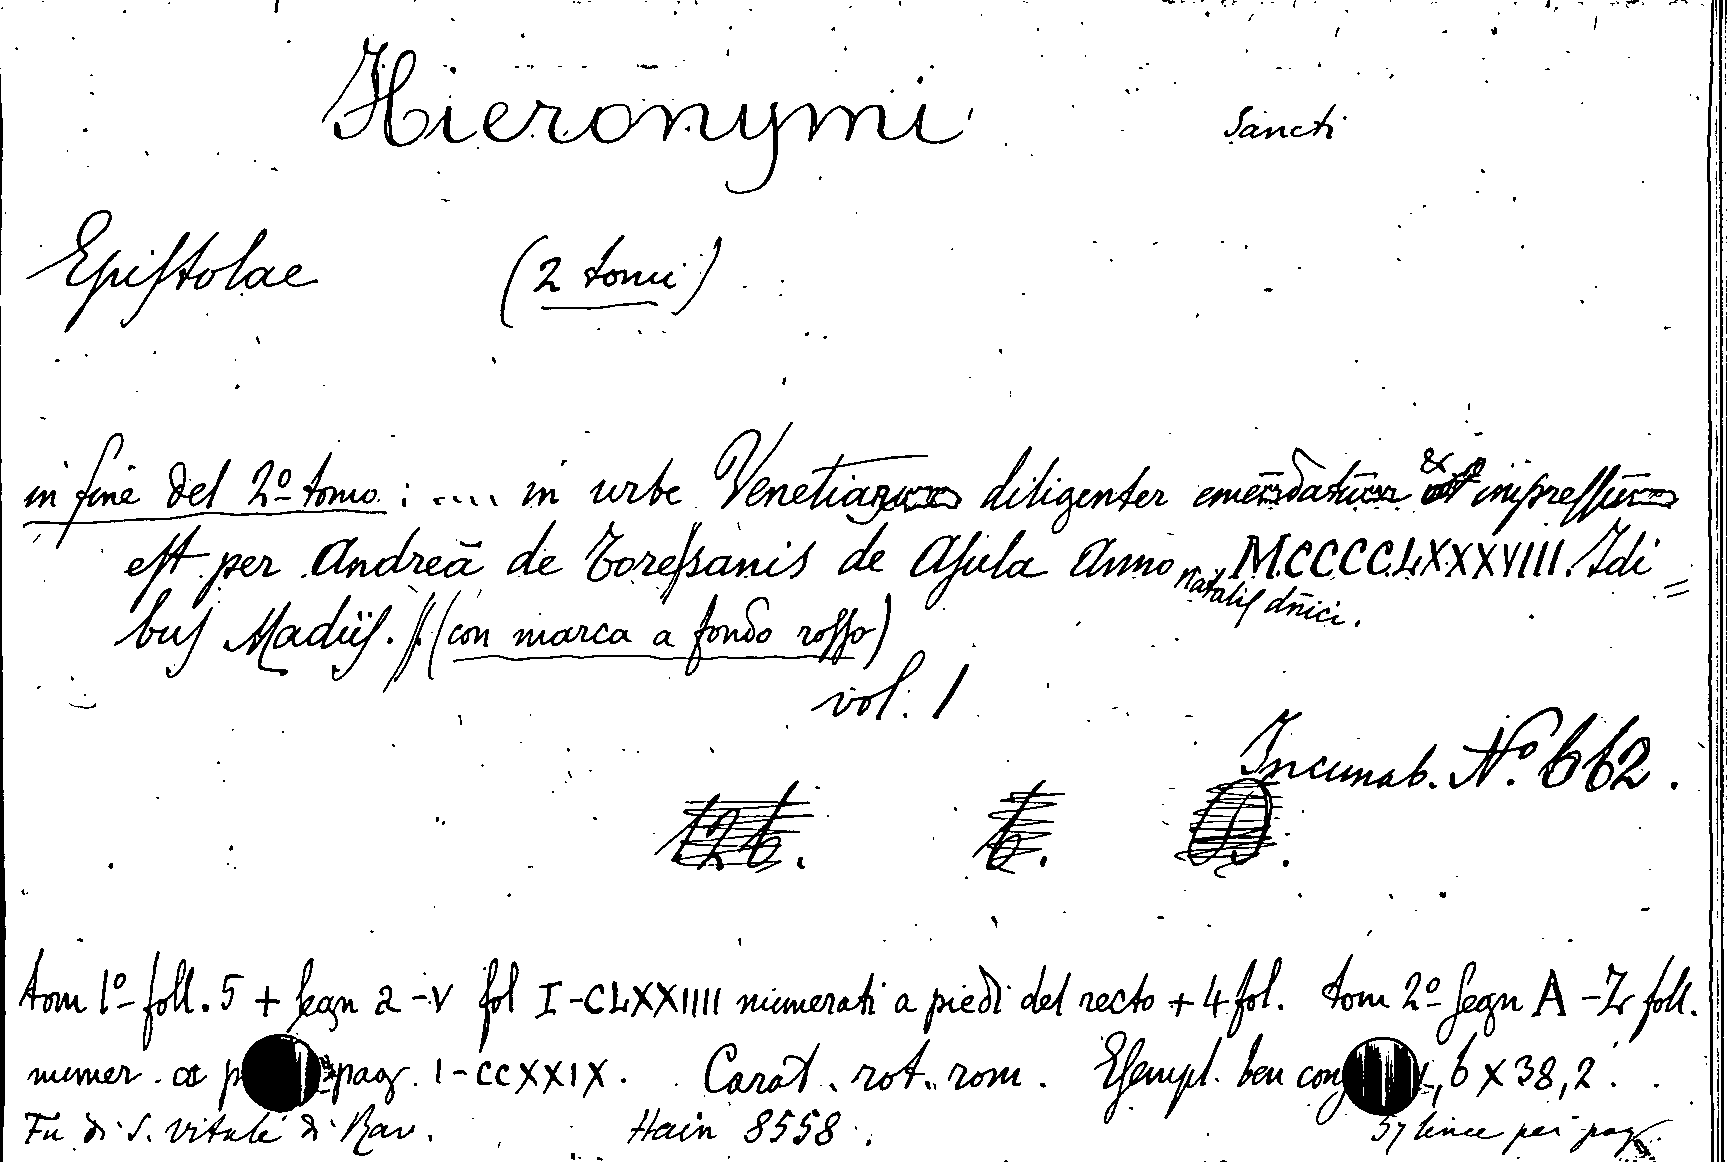 Hieronymi Sancti
Epistolae (2 tomi)
in fine del 2º tomo: .... in urbe Venetiar diligenter emēdatū & impressū
est per Andreā de Toresanis de Asula Anno Natalis dñici. M.CCCC.LXXXVIII. Idi=
bus Madiis. // (con marca a fondo rosso)
vol. 1
Incunab. Nº 662.
6.
tom 1º foll. 5 + segn a-v fol I-CLXXIIII numerati a piedi del recto + 4 fol. tom 2º segn A - foll.
numer. a pag. I-CCXXIX. Carat. rot. rom. Esempl. ben con ,6 x 38,2.
Fu di S. Vitale di Rav. Hain 8558. 57 linee per pag.